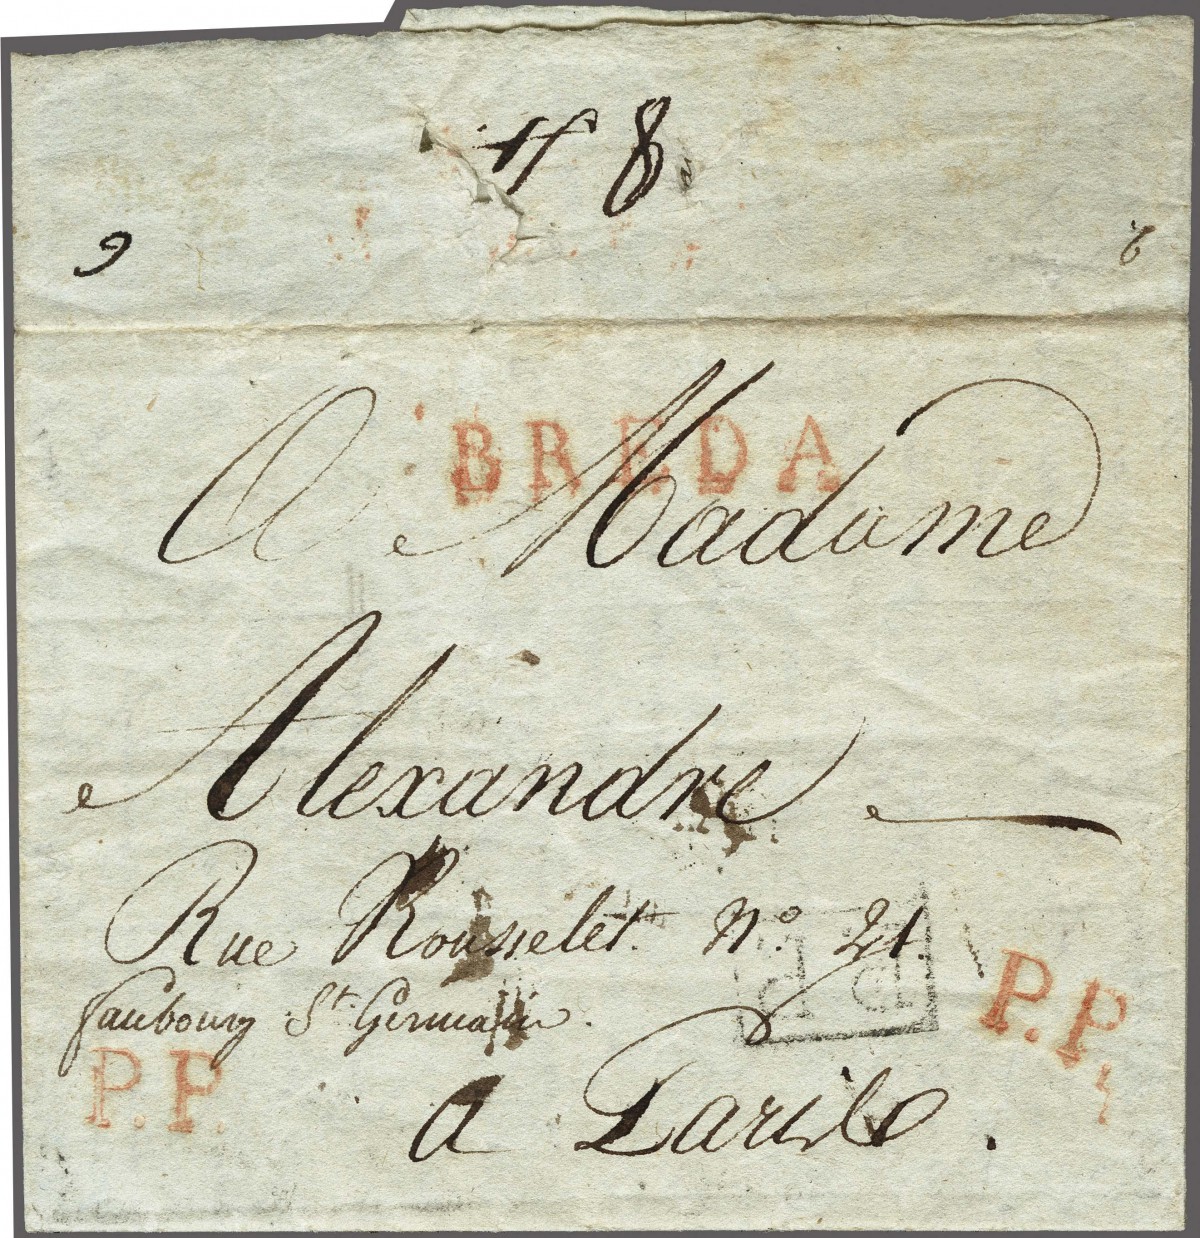 8
9
6
BREDA
A Madame
Alexandre
Rue Rousselet N.º 21.
faubourg St. Germain.
P.P.
P.P.
P.P.
a Paris.